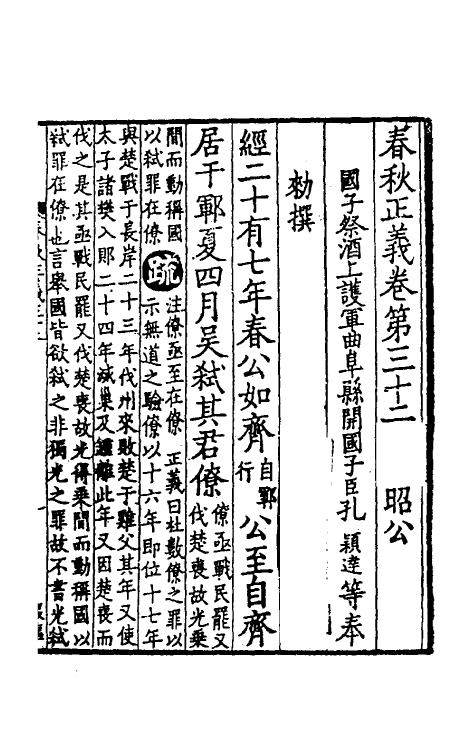 春秋正義卷第三十二　昭公
國子祭酒上護軍曲阜縣開國子臣孔穎達等奉
勑撰
經二十有七年春公如齊自鄆行公至自齊
居于鄆夏四月吳弒其君僚僚亟戰民罷又伐楚喪故光乗
間而動稱國以弒罪在僚疏注僚亟至在僚　正義曰杜數僚之罪以示無道之驗僚以十六年即位十七年
與楚戰于長岸二十三年伐州來敗楚于雞父其年又使
太子諸樊入郹二十四年滅巢及鍾離此年又因楚喪而
伐之是其亟戰民罷又伐楚喪故光得乗間而動稱國以
弒罪在僚也言舉國皆欲弒之非獨光之罪故不書光弒